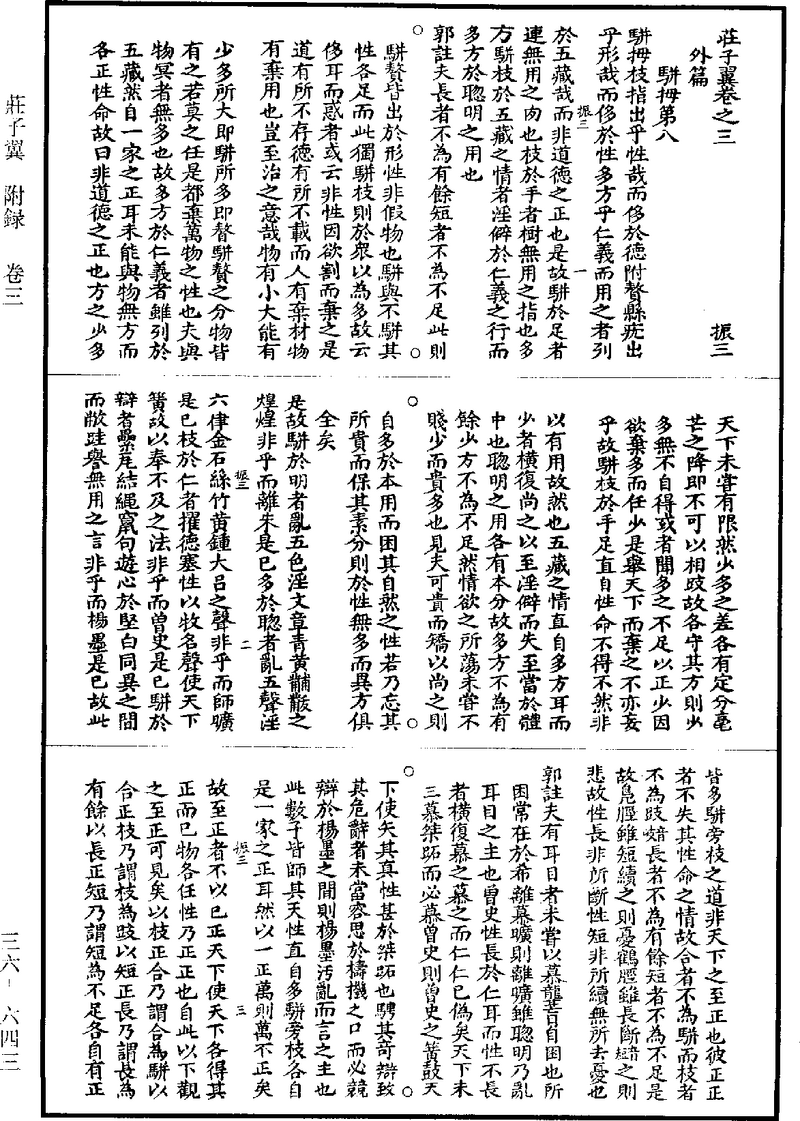 莊子翼卷之三
外篇
駢拇第八 振三
駢拇枝指出乎性哉而侈於德附贅縣疣出
乎形哉而侈於性多方乎仁義而用之者列
於五藏哉而非道德之正也是故駢於足者
連無用之肉也枝於手者樹無用之指也多
方駢枝於五藏之情者淫僻於仁義之行而
多方於聰明之用也
郭註夫長者不為有餘短者不為不足此則
駢贅皆出於形性非假物也駢與不駢其
性各足而此獨駢枝則於衆以為多故云
侈耳而惑者或云非性因欲割而棄之是
道有所不存德有所不載而人有棄材物
有棄用也豈至治之意哉物有小大能有
少多所大即駢所多即贅駢贅之分物皆
有之若莫之任是都棄萬物之性也夫與
物冥者無多也故多方於仁義者雖列於
五藏然自一家之正耳未能與物無方而
各正性命故曰非道德之正也方之少多
天下未嘗有限然少多之差各有定分毫
芒之降即不可以相跂故各守其方則少
多無不自得或者聞多之不足以正少因
欲棄多而任少是舉天下而棄之不亦妄
乎故駢枝於手足直自性命不得不然非
以有用故然也五藏之情直自多方耳而
少者橫復尚之以至淫僻而失至當於體
中也聰明之用各有本分故多方不為有
餘少方不為不足然情欲之所蕩未嘗不
賤少而貴多也見夫可貴而矯以尚之則
自多於本用而困其自然之性若乃忘其
所貴而保其素分則於性無多而異方俱
全矣
是故駢於明者亂五色淫文章青黃黼黻之
煌煌非乎而離朱是已多於聰者亂五聲淫
六律金石絲竹黃鍾大呂之聲非乎而師曠
是已枝於仁者擢德塞性以收名聲使天下
簧鼓以奉不及之法非乎而曾史是已駢於
辯者纍瓦結繩竄句遊心於堅白同異之間
而敝跬譽無用之言非乎而楊墨是已故此
皆多駢旁枝之道非天下之至正也彼正正
者不失其性命之情故合者不為駢而枝者
不為跂長者不為有餘短者不為不足是
故鳧脛雖短續之則憂鶴脛雖長斷之則
悲故性長非所斷性短非所續無所去憂也
郭註夫有耳目者未嘗以慕聾盲自困也所
困常在於希離慕曠則離曠雖聰明乃亂
耳目之主也曾史性長於仁耳而性不長
者橫復慕之慕之而仁仁已偽矣天下未
三慕桀跖而必慕曾史則曾史之簧鼓天
下使失其真性甚於桀跖也騁其奇辯致
其危辭者未當容思於檮杌之口而必競
辯於楊墨之間則楊墨汚亂而言之主也
此數子皆師其天性直自多駢旁枝各自
是一家之正耳然以一正萬則萬不正矣
故至正者不以已正天下使天下各得其
正而已物各任性乃正正也自此以下觀
之至正可見矣以枝正合乃謂合為駢以
合正枝乃謂枝為跂以短正長乃謂長為
有餘以長正短乃謂短為不足各自有正
莊子翼 附録 卷三
三六-六四三